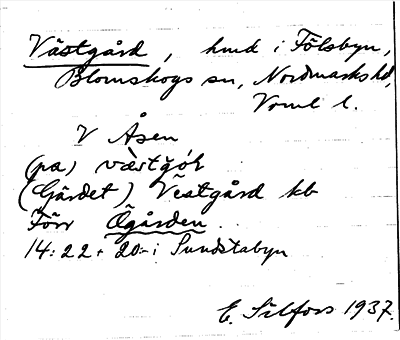 Västgård, hmd i Fölsbyn,
Blomskogs sn, Nordmarks hd,
Vrml l.
V Åsen
(pa) væ̀stgo̊ḷ
(Gärdet) Vestgård kb
Förr Ögården.
14:22 + 20:- i Sundstabyn
E. Silfors 1937.